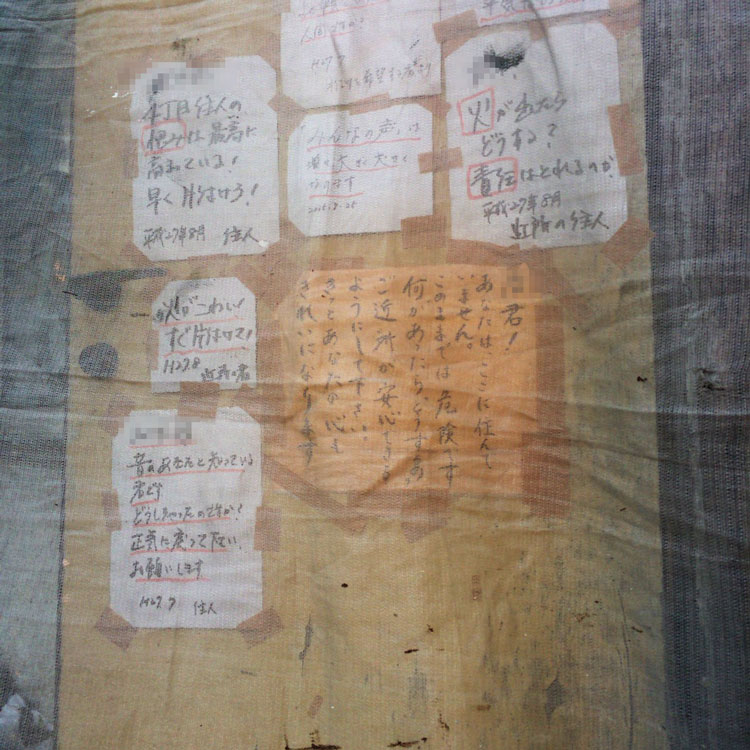 人間ですか?
H27.7
4丁目住人の
恨みは最高に
高まっている!
早く片づけろ!
平成27年8月 住人
「みんなの声」は
大きく大きく
なります
火が出たら
どうする?
責任はとれるのか?
平成27年8月
近所の住人
火がこわい!
すぐ片づけて!
H27.8
君!
あなたは、ここに住んで
いません。
このままでは危険です
何があったらどうするの。
ご近所が安心できる
ようにして下さい。
きっとあなたの心も
きれいになります
昔のあなたを知っている
者です
どうしちゃったのですか!
正気に戻って下さい。
お願いします
H27.7 住人